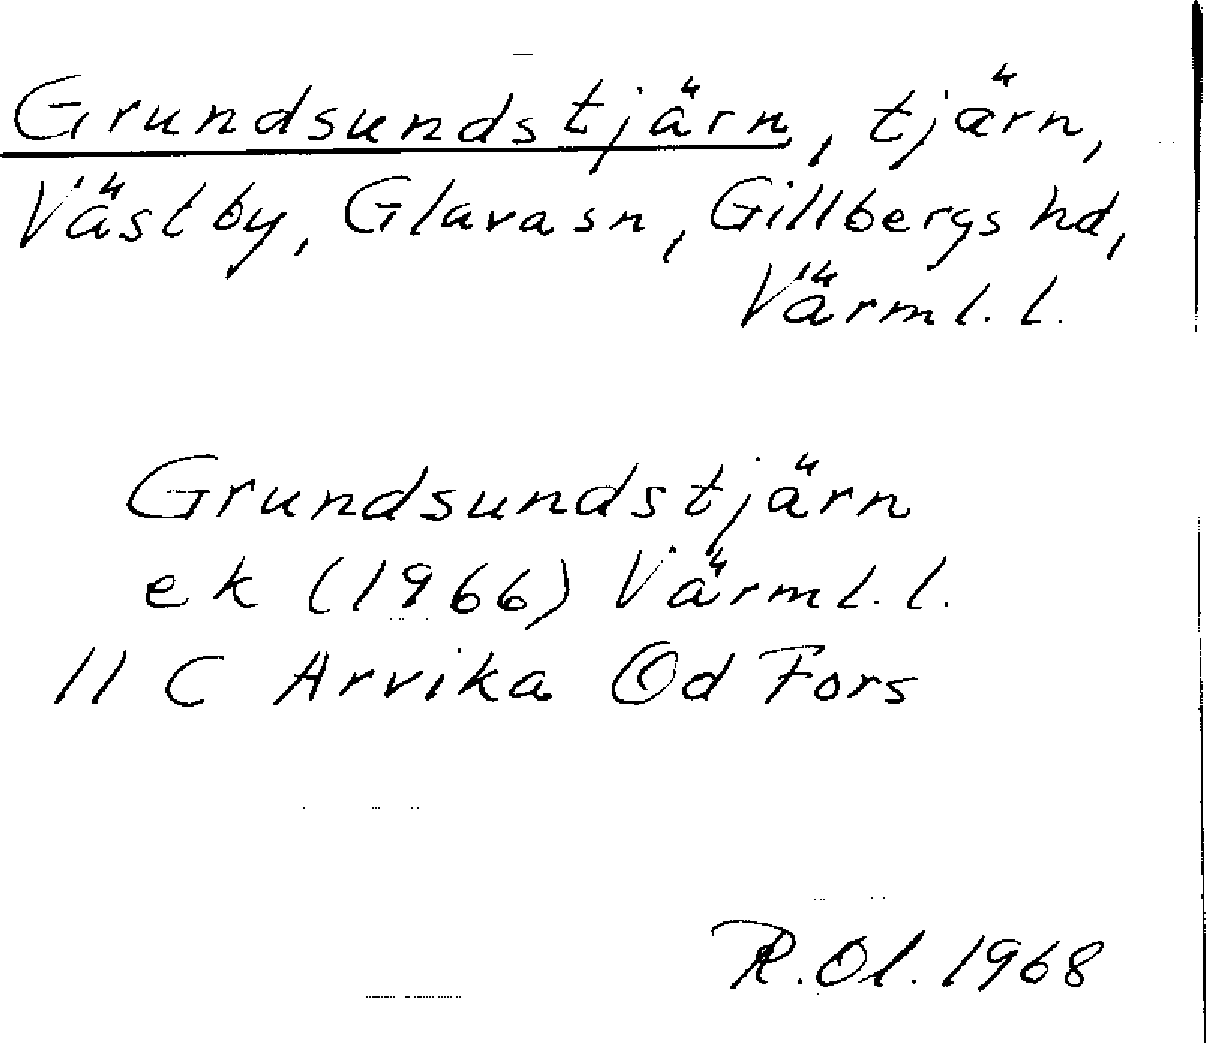 Grundsundstjärn, tjärn,
Västby, Glava sn, Gillbergs hd,
Värml. l.
Grundsundstjärn
ek (1966) Värml. l.
11 C Arvika Öd Fors
R. Ol. 1968